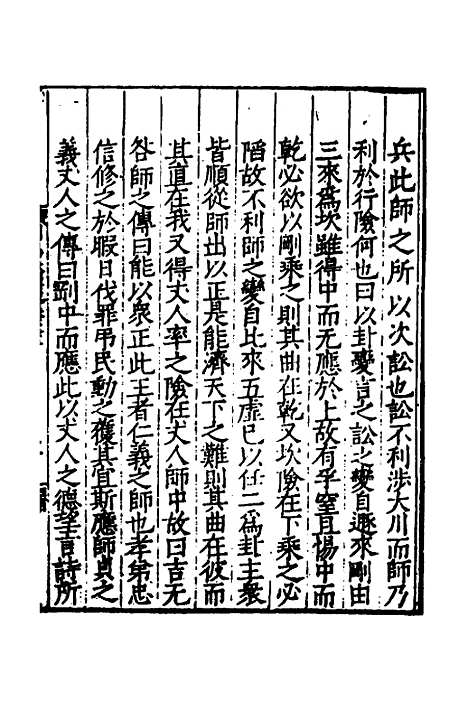 兵此師之所以次訟也訟不利涉大川而師乃
利於行險何也曰以卦變言之訟之變自遯來剛由
三來爲坎雖得中而无應於上故有孚窒且惕中而
乾必欲以剛乘之則其曲在乾又坎險在下乘之必
陷故不利師之變自比來五虛已以任二爲卦主衆
皆順從師出以正是能濟天下之難則其曲在彼而
其直在我又得丈人率之險在丈人師中故曰吉无
咎師之傳曰能以衆正此王者仁義之師也孝弟忠
信修之於暇日伐罪吊民動之獲其宜斯應師貞之
義丈人之傳曰剛中而應此以丈人之德望言詩所